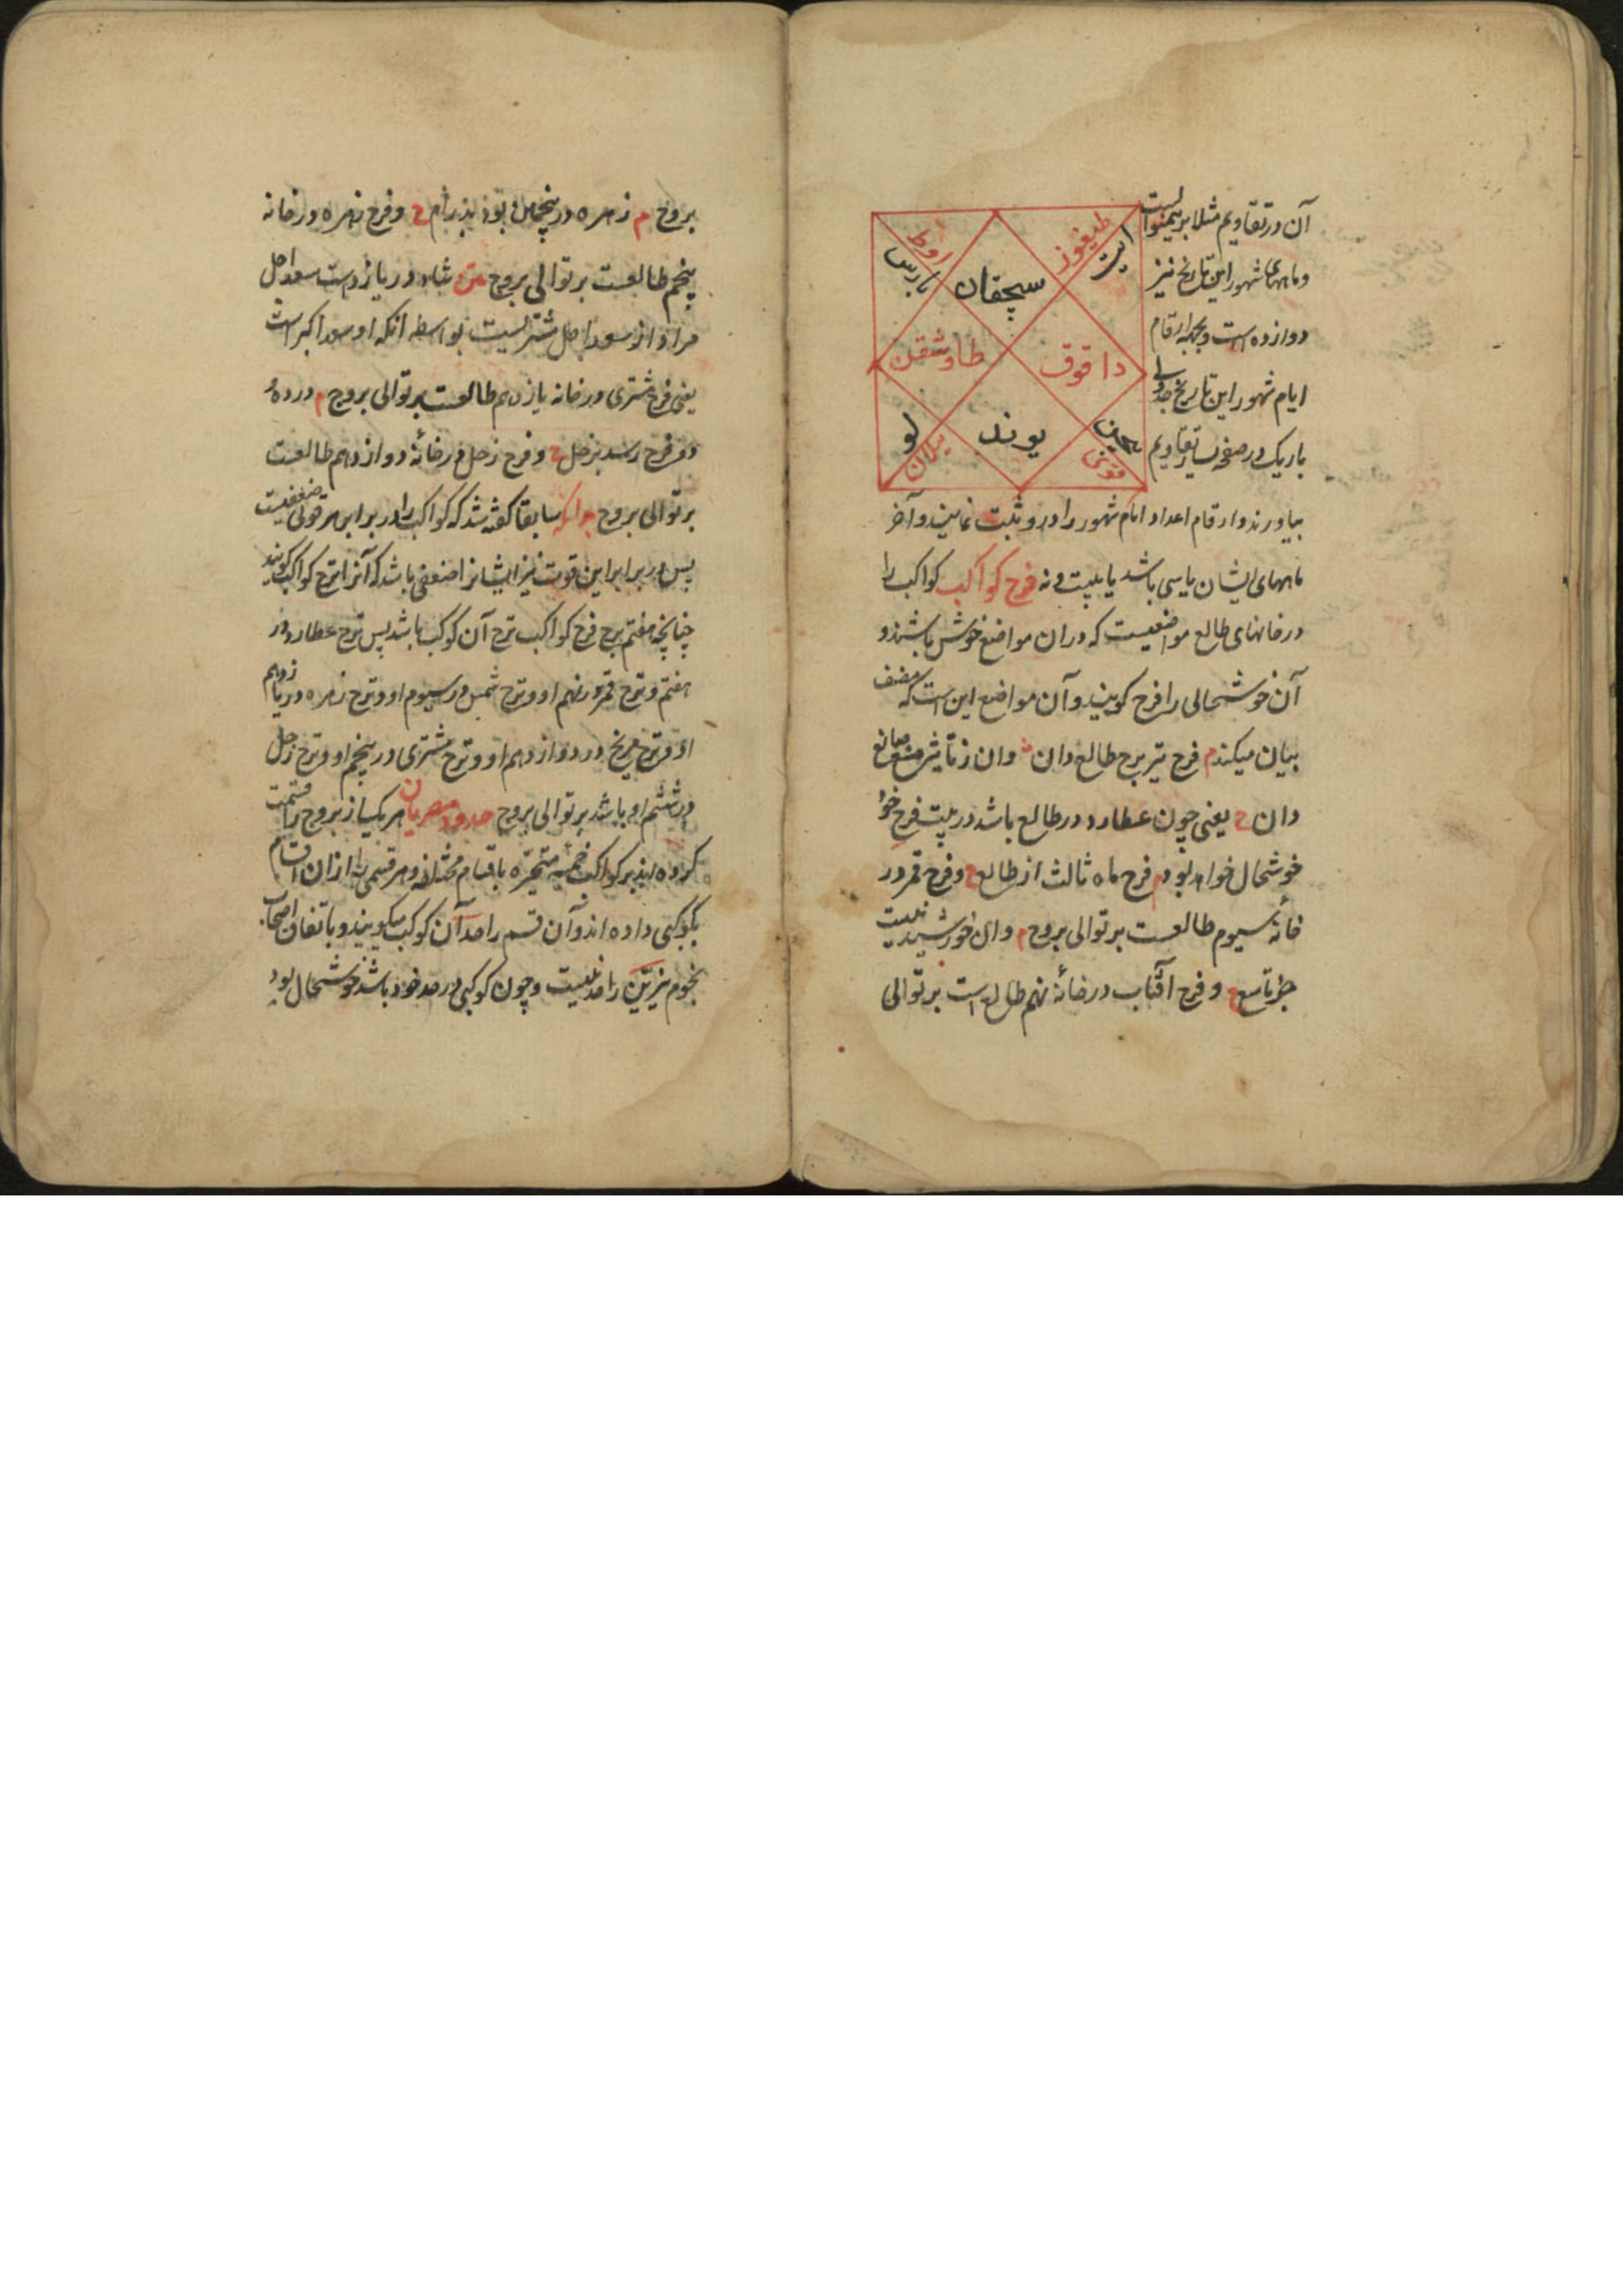 آن در تقاویم مثلا برین منوالست
و ماههای شهور این تاریخ نیز
دوازده است و بجهة ارقام
ایام شهور این تاریخ جدولی
باریک در صفحه تقاویم
سیچقان
طیغوز
ایت
داقوق
بیچین
قوئی
یوند
ییلان
لو
طاوشقن
بارس
اوط
بیاورند و ارقام اعداد ایام شهور را درو ثبت نمایند و آخر
ماههای ایشان یا سی باشد یا بیست و نه فرح کواکب کواکب را
در خانهای طالع مواضعیست که دران مواضع خوش باشند و
آن خوشحالی را فرح کویند و آن مواضع این است که مصنف
بیان میکند م فرح تیر برج طالع دان
دان ح یعنی چون عطارد در طالع باشد در بیت فرح خود
خوشحال خواهد بود م فرح ماه ثالث از طالع ح و فرح قمر در
خانه سیوم طالعست بر توالی بروج م وان خورشید نیست
جز تاسع ح و فرح آفتاب در خانۀ نهم طالع است بر توالی
بروج م زهره در پنجمین بود پدرام ح و فرح زهره در خانه
پنجم طالعست بر توالی بروج متن شاد در یازدهست سعد اجل
مراد از سعد اجل مشتریست بواسطه آنکه او سعد اکبر است
یعنی فرح مشتری در خانه یازدهم طالعست بر توالی بروج م در ده
دو فرح رسد بزحل ح و فرح زحل در خانۀ دوازدهم طالعست
بر توالی بروج بدانکه سابقا کفته شد که کواکب را در برابر هر قوتی ضعفیست
پس در برابر این قوت نیز ایشانرا ضعفی باشد که آنرا ترح کواکب کویند
چنانچه هفتم برج فرح کواکب ترح آن کوکب باشد پس ترح عطارد در
هفتم و ترح قمر در نهم او و ترح شمس در سیوم او و ترح زهره در یازدهم
او و ترح مریخ در دوازدهم او و ترح مشتری در پنجم او و ترح زحل
در ششم او باشد بر توالی بروج حدود مصریان هر یک از بروج را قسمت
کرده اند بر کواکب خمسه متحیره باقسام مختلفه و هر قسمی را ازان اقسام
بکوکبی داده اند و آن قسم را حد آن کوکب میکویند و باتفاق اصحاب
نجوم نیرین را حد نیست و چون کوکبی در حد خود باشد خوشحال بود